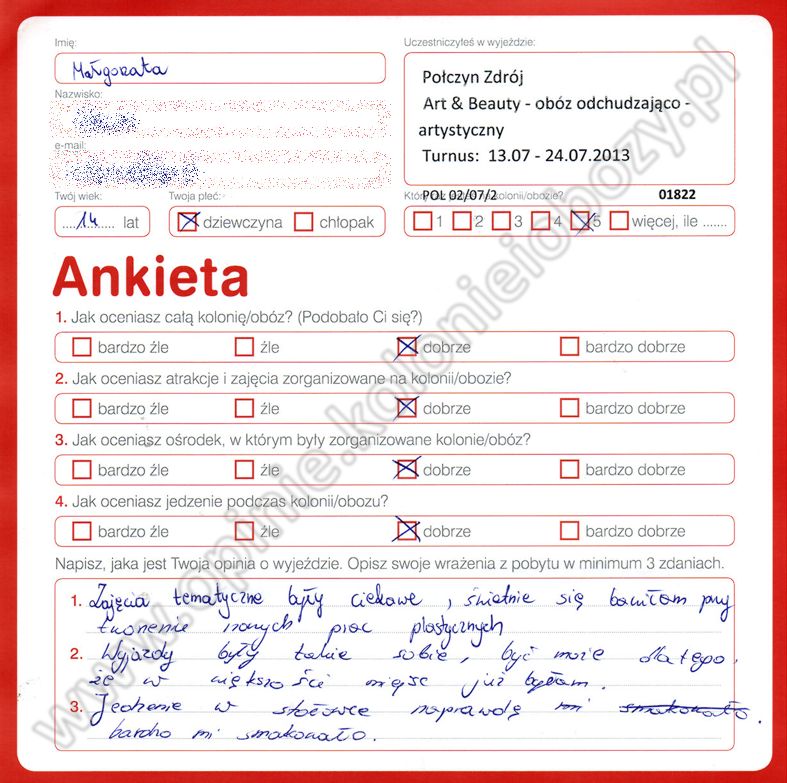 Imię:
Małgorzata
Nazwisko:
e-mail:
Twój wiek:
14 lat
Twoja płeć:
dziewczyna chłopak
Uczestniczyłeś w wyjeździe:
Połczyn Zdrój
Art & Beauty - obóz odchudzająco -
artystyczny
Turnus: 13.07 - 24.07.2013
POL 02/07/2 01822
kolonii/obozie?
1 2 3 4 5 więcej, ile .......
Ankieta
1. Jak oceniasz całą kolonię/obóz? (Podobało Ci się?)
bardzo źle źle dobrze bardzo dobrze
2. Jak oceniasz atrakcje i zajęcia zorganizowane na kolonii/obozie?
bardzo źle źle dobrze bardzo dobrze
3. Jak oceniasz ośrodek, w którym były zorganizowane kolonie/obóz?
bardzo źle źle dobrze bardzo dobrze
4. Jak oceniasz jedzenie podczas kolonii/obozu?
bardzo źle źle dobrze bardzo dobrze
Napisz, jaka jest Twoja opinia o wyjeździe. Opisz swoje wrażenia z pobytu w minimum 3 zdaniach.
1. Zajęcia tematyczne były ciekawe, świetnie się bawiłam przy
tworzeniu prac plastycznych
2. Wyjazdy były takie sobie, być może dlatego,
że w większości miejsc już byłam.
3. Jedzenie w stołówce naprawdę mi smakowało.
bardzo mi smakowało.
www.opinie.kolonieiobozy.pl